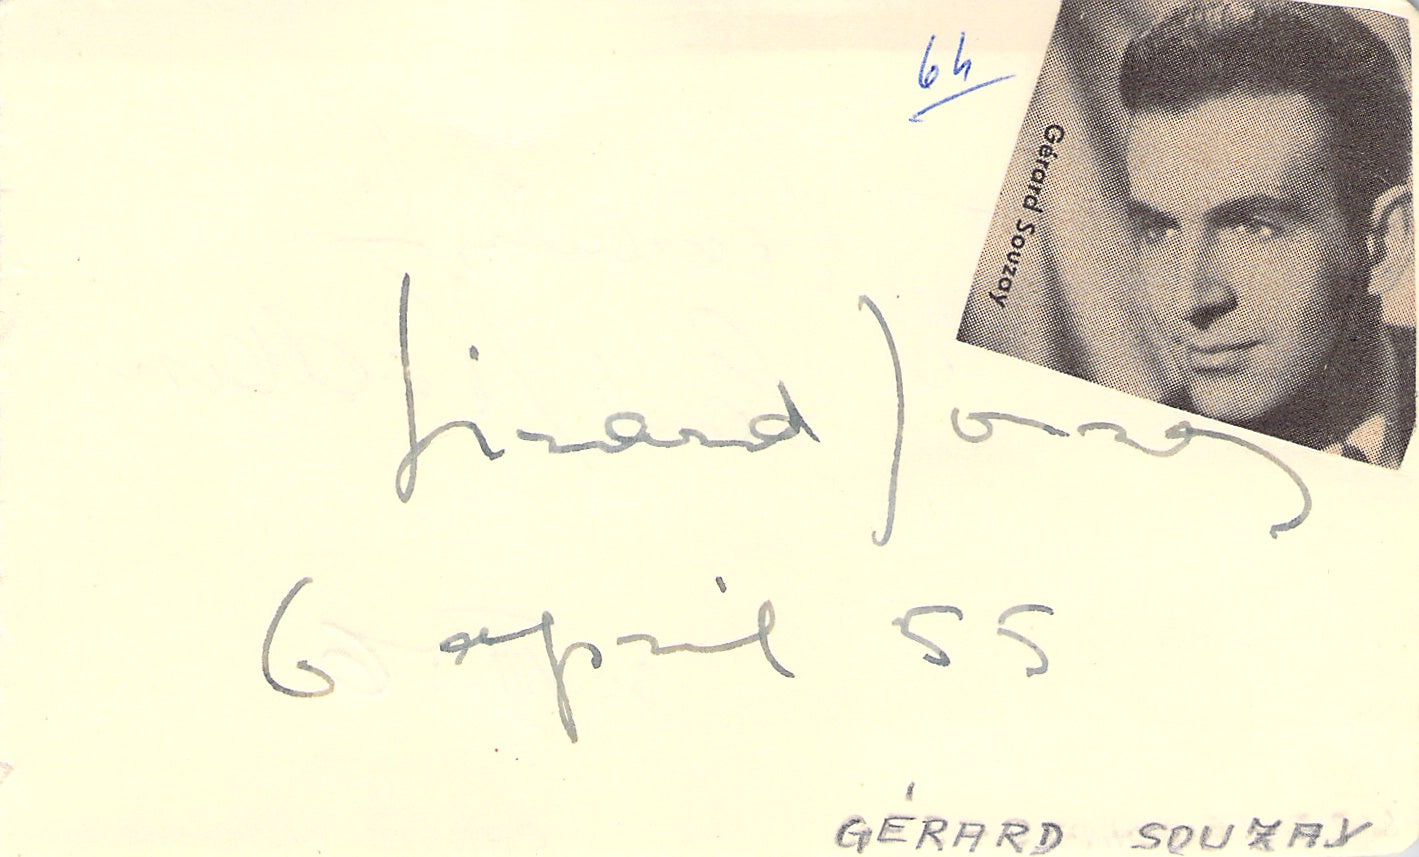 64
Gérard Souzay
Gérard Souzay
6 april 55
GÉRARD SOUZAY